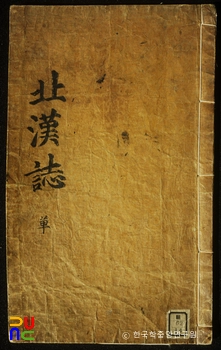 北漢誌
單
© 한국학중앙연구원